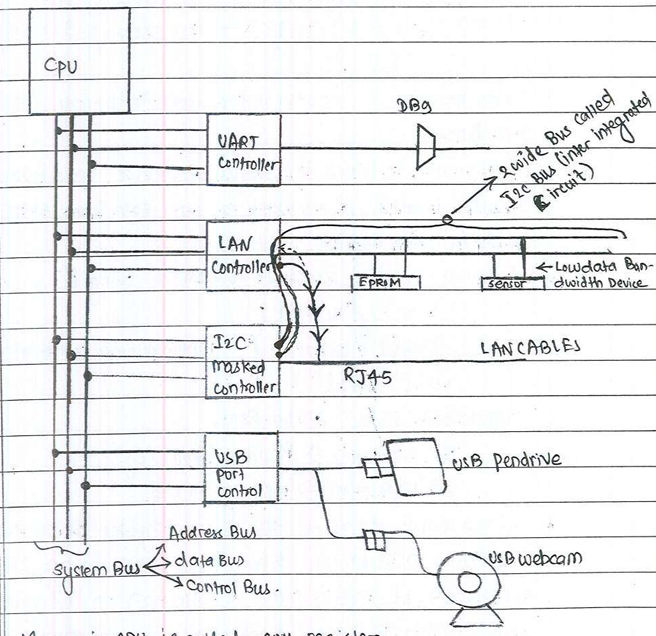 CPU
DB9
UART
Controller
2 wide Bus called
I2c Bus (inter integrated
Circuit)
LAN
Controller
EPROM
sensor
Low data Ban-
dwidth Device
I2C
masked
controller
LAN CABLES
RJ45
USB
port
control
USB Pendrive
USB webcam
Address Bus
data Bus
Control Bus.
System Bus